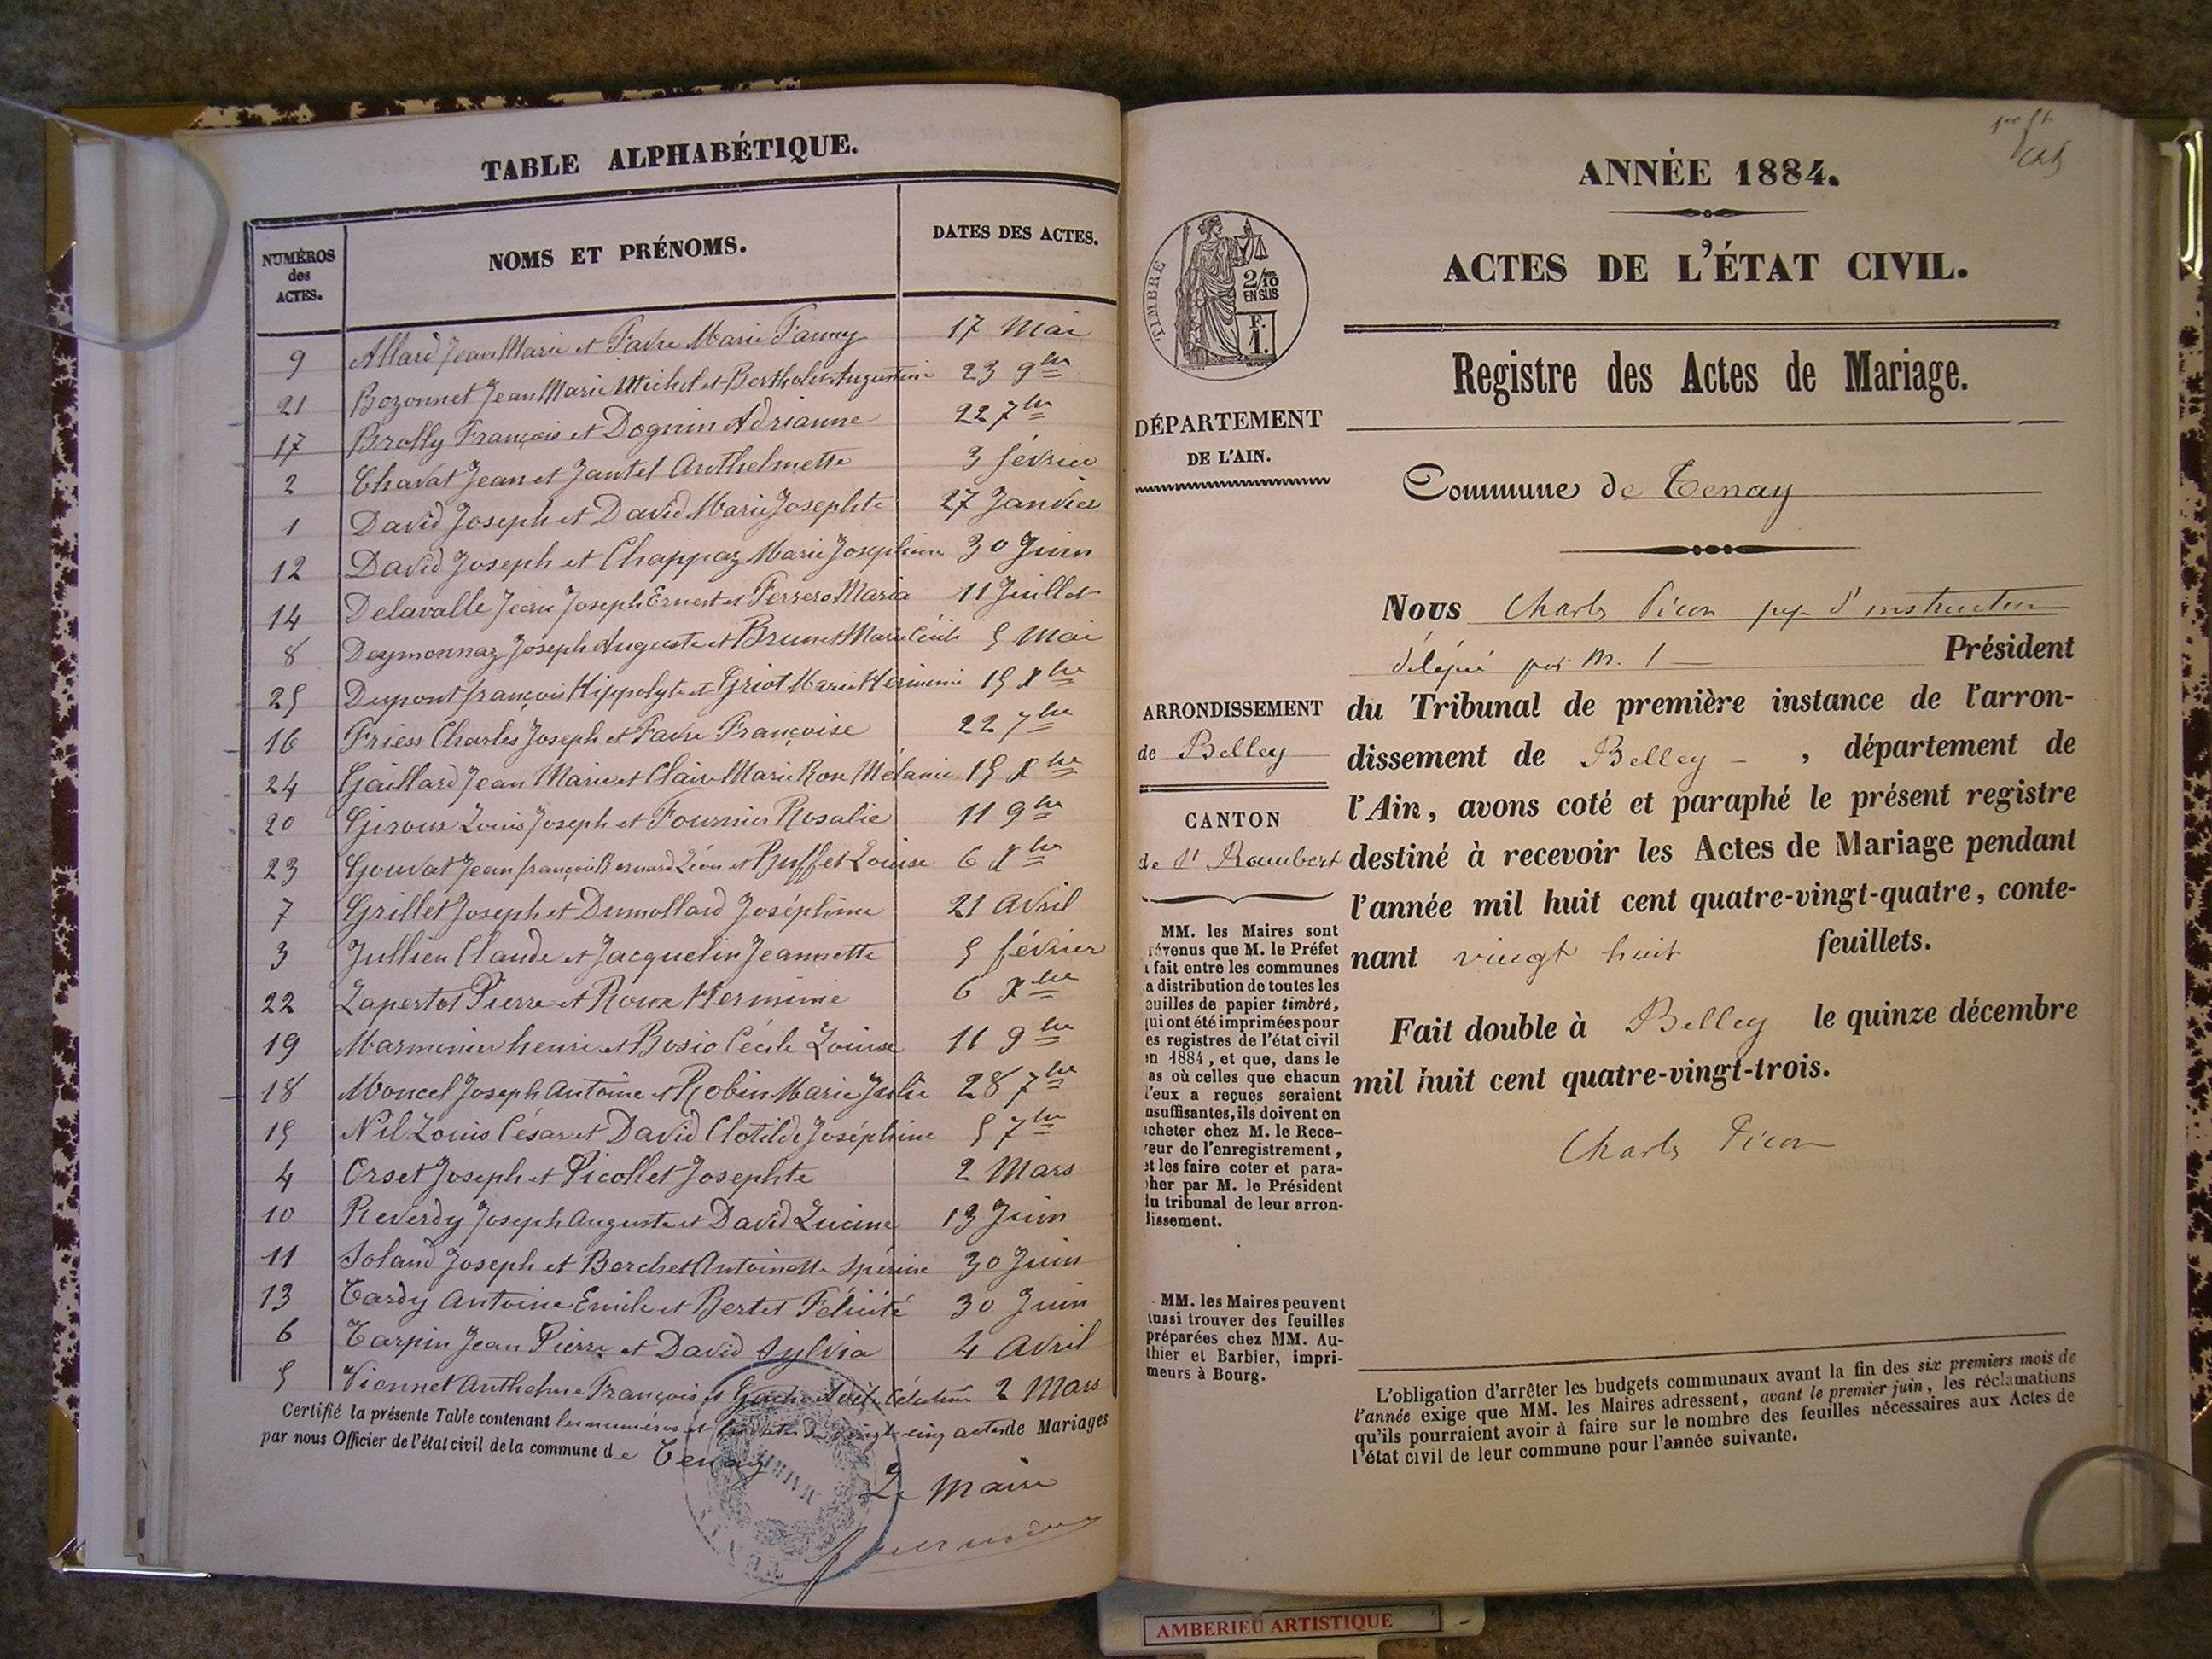 TABLE ALPHABÉTIQUE.
NUMÉROS des ACTES. NOMS ET PRÉNOMS. DATES DES ACTES.
9 Allard Jean Marie et Favre Marie Fanny 17 Mai
21 Bozonnet Jean Marie Michel et Bertholet Augustine 23 9bre
17 Brolly François et Dognin Adrianne 22 7bre
2 Chavat Jean et Jantet Anthelmette 3 février
1 David Joseph et David Marie Josephte 27 Janvier
12 David Joseph et Chappaz Marie Joséphine 30 Juin
14 Delavalle Jean Joseph Ernest et Ferrero Maria 11 Juillet
8 Deymonnaz Joseph Auguste et Brunet Marie Cécile 5 Mai
25 Dupont françois Hippolyte et Griot Marie Herminie 15 Xbre
16 Friess Charles Joseph et Favre Françoise 22 7bre
24 Gaillard Jean Marie et Claire Marie Rose Mélanie 15 Xbre
20 Giroux Louis Joseph et Fournier Rosalie 11 9bre
23 Gouvat Jean françois Bernard Léon et Buffet Louise 6 Xbre
7 Grillet Joseph et Dumollard Joséphine 21 Avril
3 Jullien Claude et Jacquelin Jeannette 5 février
22 Lapertot Pierre et Roux Herminie 6 Xbre
19 Marminier henri et Bosio Cécile Louise 11 9bre
18 Moncel Joseph Antoine et Robin Marie Julie 28 7bre
15 Nil Louis César et David Clotilde Joséphine 5 7bre
4 Orset Joseph et Picollet Josephte 2 Mars
10 Reverdy Joseph Auguste et David Lucine 13 Juin
11 Soland Joseph et Berchet Antoinette Spérine 30 Juin
13 Tardy Antoine Emile et Bertet Félicité 30 Juin
6 Tarpin Jean Pierre et David Sylvia 4 Avril
5 Vionnet Anthelme François et 2 Mars
Certifié la présente Table contenant les numéros et les dates de vingt-cinq actes de Mariages
par nous Officier de l'état civil de la commune de Tenay
Le Maire
MAIRIE
1er ft
ANNÉE 1884.
ACTES DE L'ÉTAT CIVIL.
Registre des Actes de Mariage.
TIMBRE
2/10
EN SUS
F.
1.
DÉPARTEMENT
DE L'AIN.
Commune de Tenay
Nous Charles Picon juge d'instruction
délégué par M. l Président
du Tribunal de première instance de l'arron-
dissement de Belley, département de
l'Ain, avons coté et paraphé le présent registre
destiné à recevoir les Actes de Mariage pendant
l'année mil huit cent quatre-vingt-quatre, conte-
nant vingt huit feuillets.
Fait double à Belley le quinze décembre
mil huit cent quatre-vingt-trois.
Charles Picon
ARRONDISSEMENT
de Belley
CANTON
de St Rambert
MM. les Maires sont
révenus que M. le Préfet
a fait entre les communes
a distribution de toutes les
euilles de papier timbré,
qui ont été imprimées pour
es registres de l'état civil
en 1884, et que, dans le
as où celles que chacun
l'eux a reçues seraient
nsuffisantes, ils doivent en
acheter chez M. le Rece-
veur de l'enregistrement,
et les faire coter et para-
pher par M. le Président
du tribunal de leur arron-
dissement.
MM. les Maires peuvent
aussi trouver des feuilles
préparées chez MM. Au-
thier et Barbier, impri-
meurs à Bourg.
L'obligation d'arrêter les budgets communaux avant la fin des six premiers mois de
l'année exige que MM. les Maires adressent, avant le premier juin, les réclamations
qu'ils pourraient avoir à faire sur le nombre des feuilles nécessaires aux Actes de
l'état civil de leur commune pour l'année suivante.
AMBERIEU ARTISTIQUE